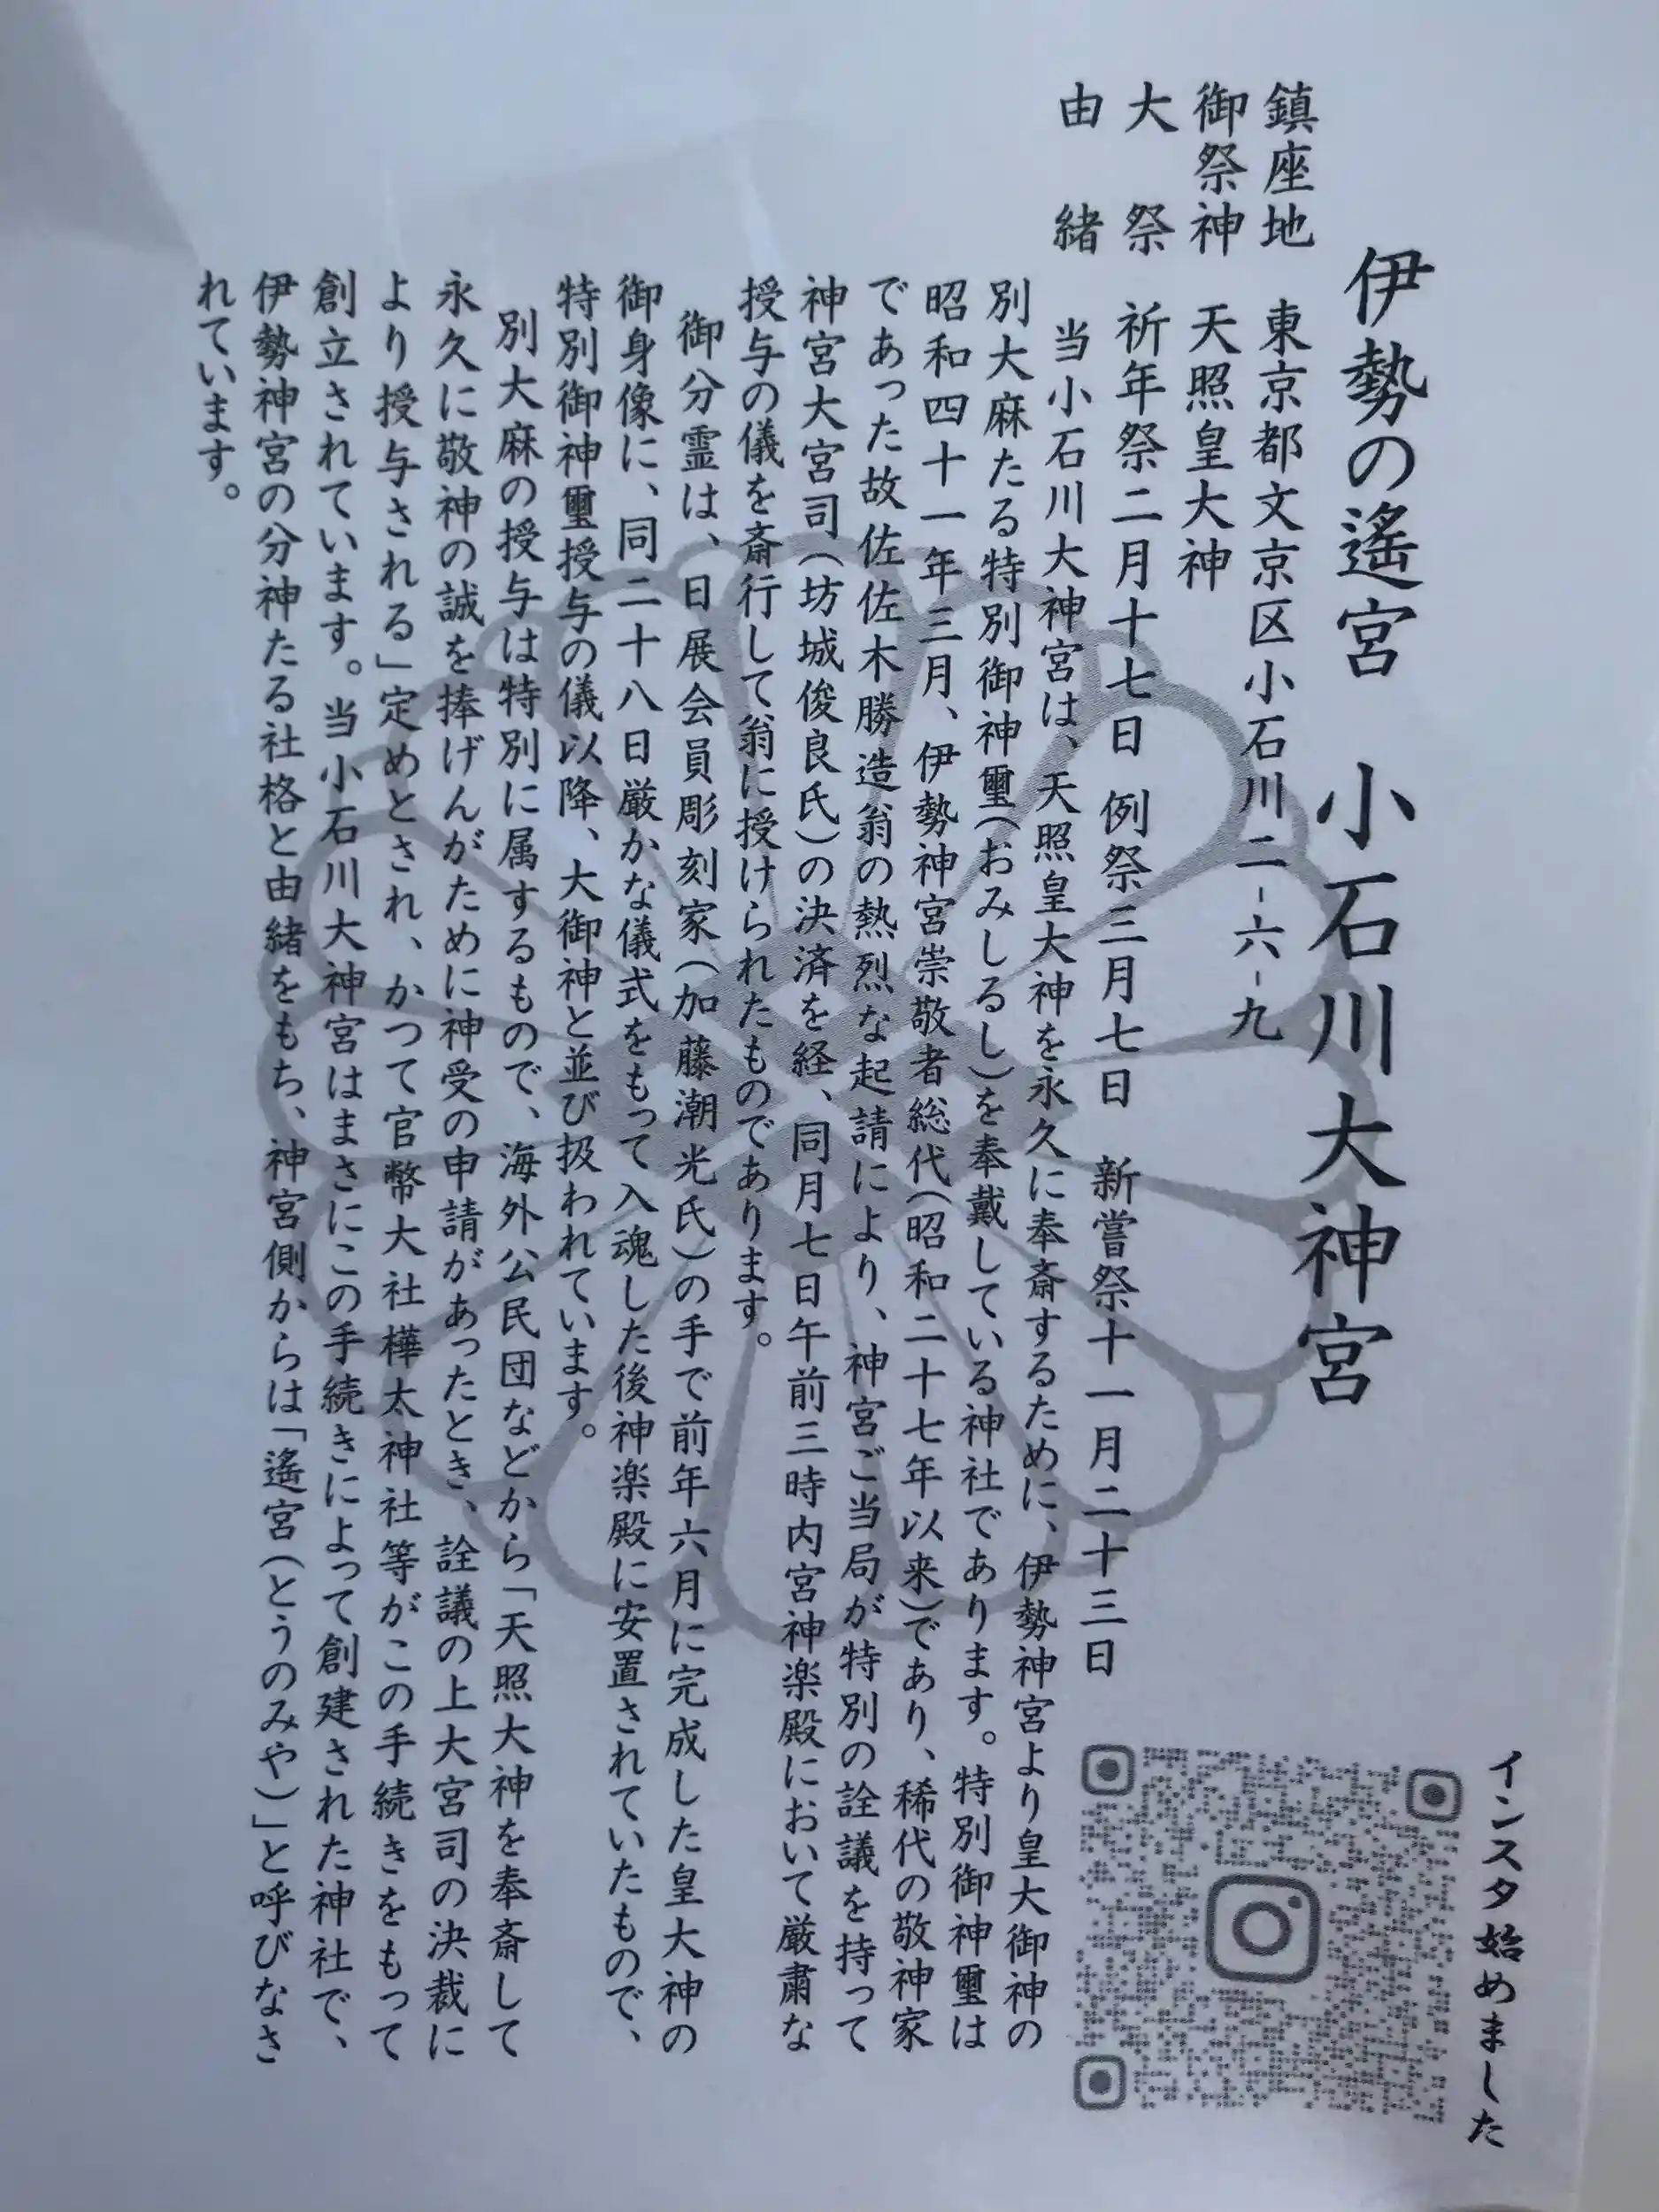 インスタ始めました
伊勢の遙宮　小石川大神宮
鎮座地　東京都文京区小石川二-六-九
御祭神　天照皇大神
大祭　祈年祭二月十七日　例祭三月七日　新嘗祭十一月二十三日
由緒
当小石川大神宮は、天照皇大神を永久に奉斎するために、伊勢神宮より皇大御神の
別大麻たる特別御神璽(おみしるし)を奉戴している神社であります。特別御神璽は
昭和四十一年三月、伊勢神宮崇敬者総代(昭和二十七年以来)であり、稀代の敬神家
であった故佐佐木勝造翁の熱烈な起請により、神宮ご当局が特別の詮議を持って
神宮大宮司(坊城俊良氏)の決済を経、同月七日午前三時内宮神楽殿において厳粛な
授与の儀を斎行して翁に授けられたものであります。
御分霊は、日展会員彫刻家(加藤潮光氏)の手で前年六月に完成した皇大神の
御身像に、同二十八日厳かな儀式をもって入魂した後神楽殿に安置されていたもので、
特別御神璽授与の儀以降、大御神と並び扱われています。
別大麻の授与は特別に属するもので、海外公民団などから「天照大神を奉斎して
永久に敬神の誠を捧げんがために神受の申請があったとき、詮議の上大宮司の決裁に
より授与される」定めとされ、かつて官幣大社樺太神社等がこの手続きをもって
創立されています。当小石川大神宮はまさにこの手続きによって創建された神社で、
伊勢神宮の分神たる社格と由緒をもち、神宮側からは「遙宮(とうのみや)」と呼びなさ
れています。